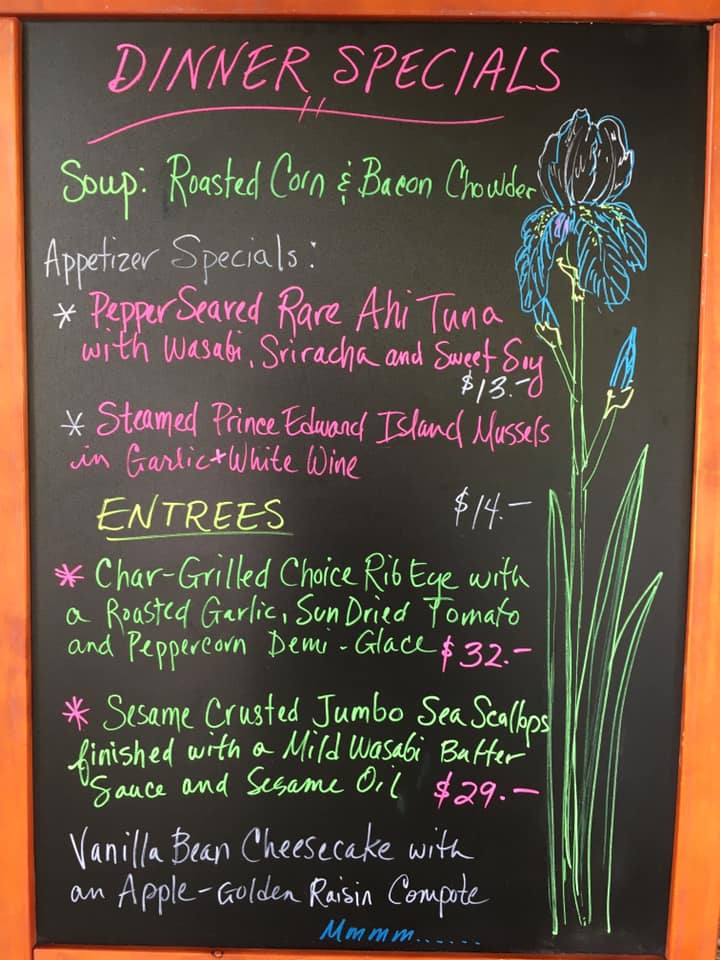 DINNER SPECIALS
Soup: Roasted Corn & Bacon Chowder
Appetizer Specials:
* Pepper Seared Rare Ahi Tuna
with Wasabi, Sriracha and Sweet Soy
$13.-
* Steamed Prince Edward Island Mussels
in Garlic + White Wine
$14.-
ENTREES
* Char-Grilled Choice Rib Eye with
a Roasted Garlic, Sun Dried Tomato
and Peppercorn Demi-Glace $32.-
* Sesame Crusted Jumbo Sea Scallops
finished with a Mild Wasabi Butter
Sauce and Sesame Oil $29.-
Vanilla Bean Cheesecake with
an Apple-Golden Raisin Compote
Mmmm......